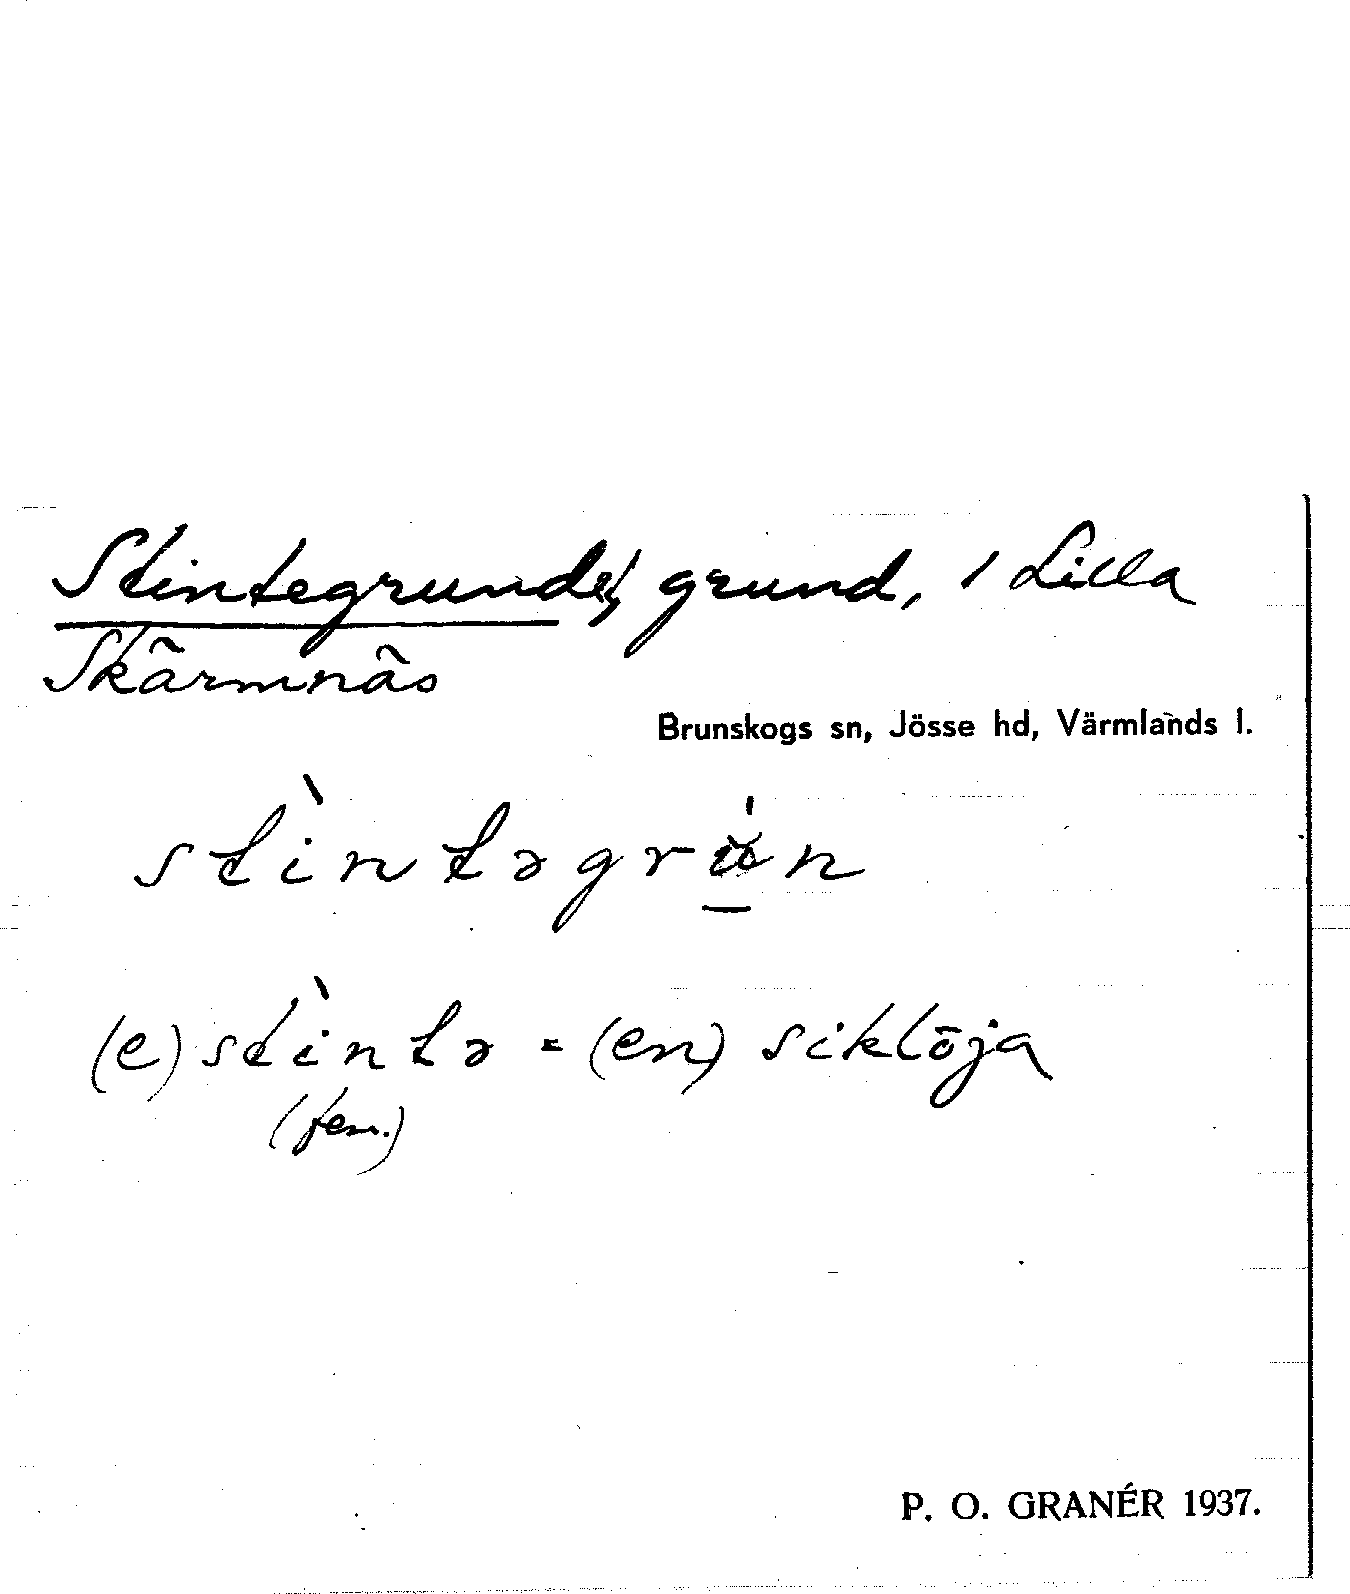 Stintegrundet, grund, 1 Lilla
Skärmnäs
Brunskogs sn, Jösse hd, Värmlands l.
stìntəgrùn
(e) stìntə = (en) siklöja
(fem.)
P. O. GRANÉR 1937.